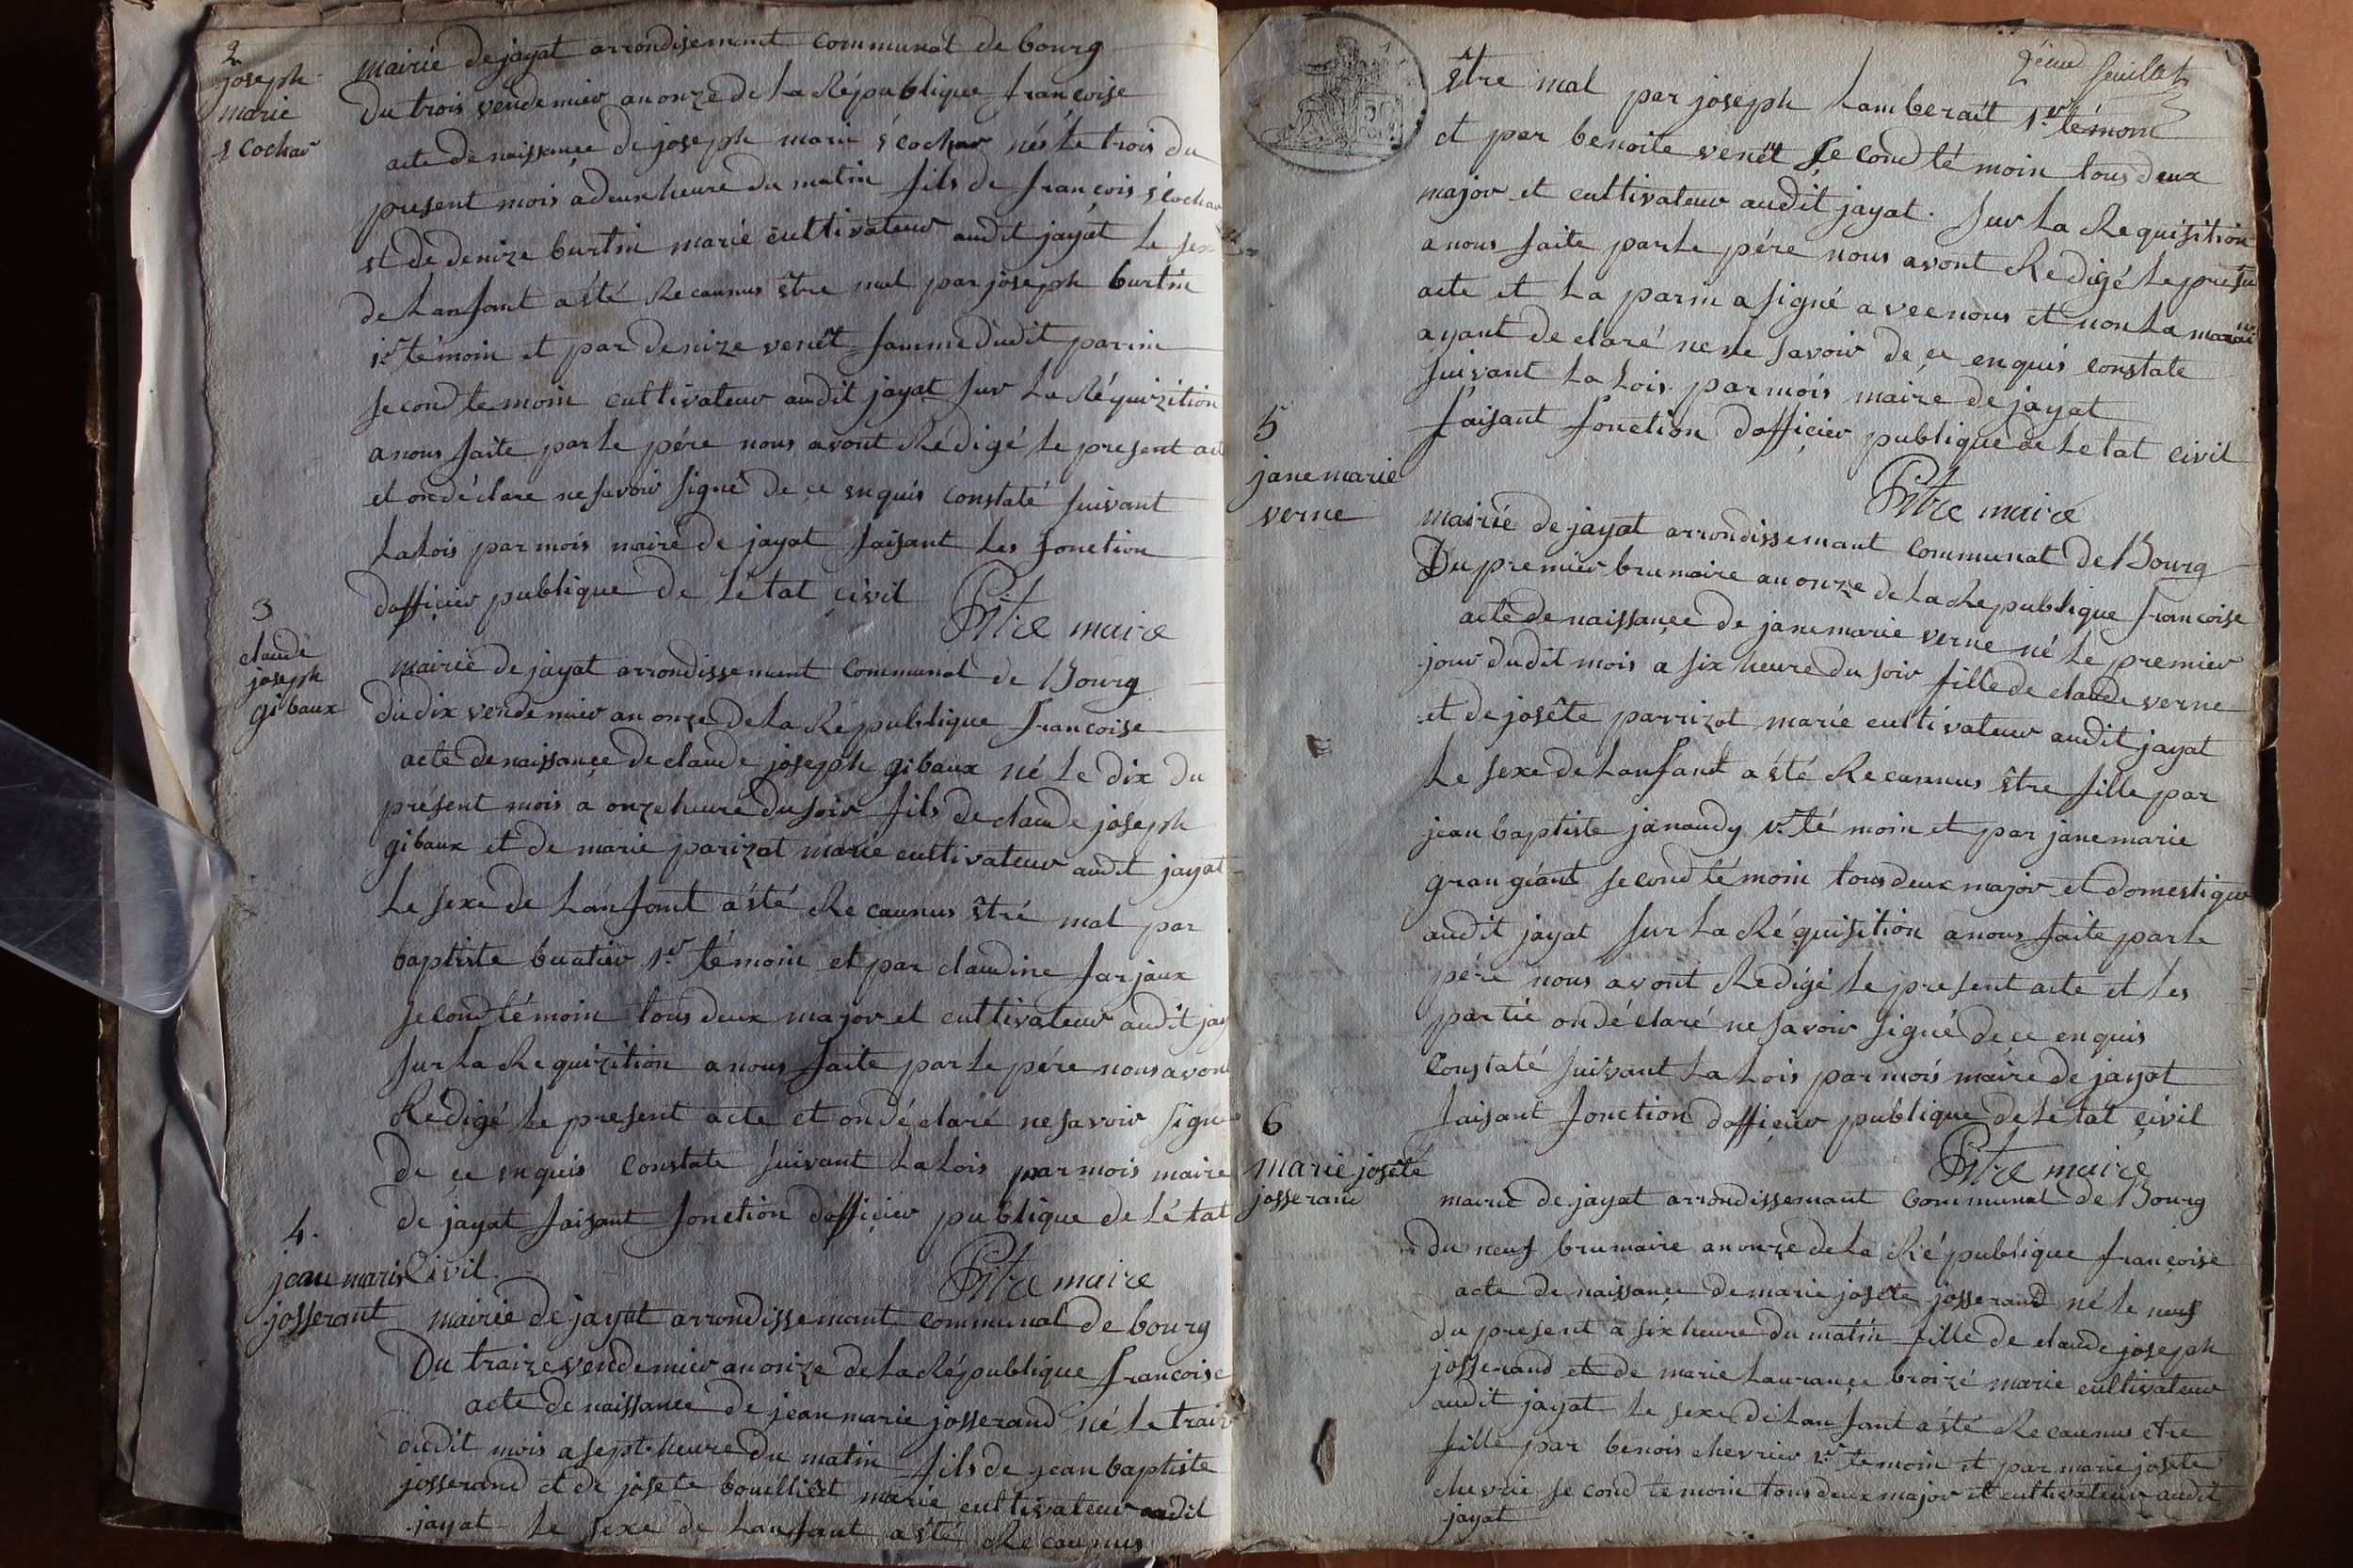 2
joseph
marie
écochar
mairie de jayat arrondisemant communal de bourg
du trois vendemier an onze de la République françoise
acte de naissance de joseph marie écochar né le trois du
present mois a deux heure du matin fils de françois écochar
et de denize burtin marié cultivateur audit jayat le sex
de lanfant a été Recaunus être mal par joseph burtin
1er témoin et par denize venêt famme dudit parin
second temoin cultivateur audit jayat sur la Réquizition
a nous faite par le pére nous avont Rédigé le present act
et on déclare ne savoir signé de ce enquis constaté suivant
la lois par mois maire de jayat faisant les fonction
dofficier publique de létat civil
Pitre maire
3
claude
joseph
gibaux
mairie de jayat arrondissemant communal de Bourg
du dix vendemier an onze de la République françoise
acte de naissance de claude joseph gibaux né le dix du
présent mois a onze heure du soir fils de claude joseph
gibaux et de marie parizot marié cultivateur audit jayat
le sexe de lanfant a été Recaunus être mal par
baptiste buatier 1er témoin et par claudine farjaux
second témoin tous deux major et cultivateur audit jay
sur la Requizition a nous faite par le pére nous avon
Redigé le present acte et on déclaré ne savoir signe
de ce enquis constate suivant la lois par mois maire
de jayat faisant fonction dofficier publique de létat
civil
Pitre maire
4.
jean marie
josserant
mairie de jayat arrondissemant communal de bourg
Du traize vendemier an onze de la République françoise
acte de naissance de jean marie josserand né le traiz
dudit mois a sept heure du matin fils de jean baptiste
josserand et de josete bouilliêt marié cultivateur audit
jayat le sexe de lanfant a été Recaunus
2éme feuillet
être mal par joseph Lamberait 1er témoin
et par benoite venêt second témoin tous deux
major et cultivateur audit jayat. sur la Requisition
a nous faite par le pére nous avont Redigé le presen
acte et la parin a signé avec nous et non la maraine
ayant de claré ne le savoir de ce enquis constate
suivant la lois par mois maire de jayat
faisant fonction dofficier publique de letat civil
Pitre maire
5
jane marie
verne
mairie de jayat arrondissemant communal de Bourg
Du premier brumaire an onze de la Republique françoise
acte de naissance de jane marie verne né le premier
jour dudit mois a six heure du soir fille de claude verne
et de josête parrizot marié cultivateur audit jayat
le sexe de lanfant a été Recaunus être fille par
jean baptiste janaudy 1er témoin et par jane marie
grangéant second témoin tous deux major et domestique
audit jayat sur la Réquisition a nous faite par le
pére nous avont Redigé le present acte et les
partie on déclaré ne savoir signé de ce enquis
constaté suivant la lois par mois maire de jayat
faisant fonction dofficier publique de létat civil
Pitre maire
6
marie joséte
josserand
mairie de jayat arrondissemant communal de Bourg
du neuf brumaire an onze de la République françoise
acte de naissance de marie joséte josserand né le neuf
du present a six heure du matin fille de claude joseph
josserand et de marie laurançe broizé marié cultivateur
audit jayat le sexe de lanfant a été Recaunus etre
fille par benois chevrier 1er temoin et par marie joséte
chevrié second temoin tous deux major et cultivateur audit
jayat